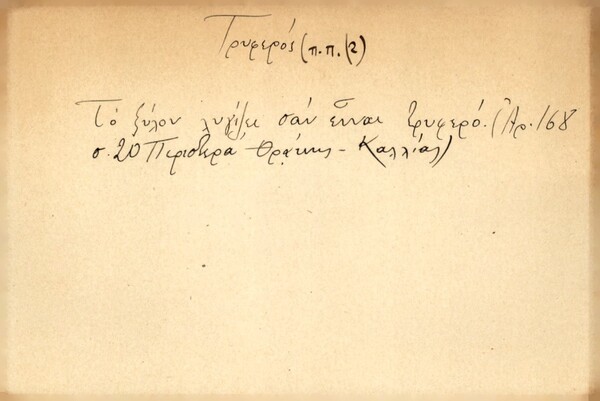 Τρυφερός (π.π. (2)
Τό ξύλον λυγίζει σάν εἶναι τρυφερό. (Ἀρ. 168
σ. 20 Περιστερά Θράκης - Καλλίας)